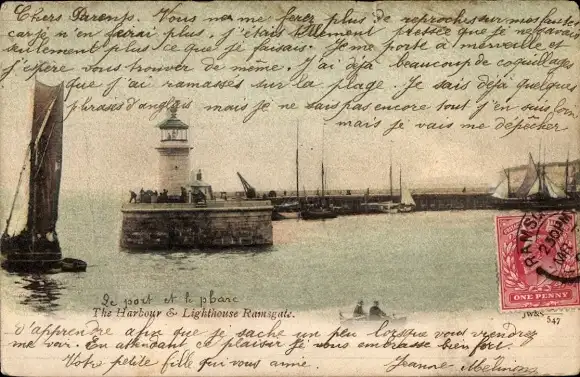 Chers Parents. Vous ne me ferez plus de reproches sur mes fautes
car je n'en ferai plus, j'étais tellement pressée que je ne savais
seulement plus ce que je faisais. Je me porte à merveille et
j'espère vous trouver de même. J'ai déjà beaucoup de coquillages
que j'ai ramassés sur la plage. Je sais déjà quelques
phrases d'anglais mais je ne sais pas encore tout j'en suis loin
mais je vais me dépêcher
Le port et le phare
The Harbour & Lighthouse Ramsgate.
RAMS
ONE PENNY
547
d'apprendre afin que je sache un peu lorsque vous viendrez
me voir. En attendant ce plaisir je vous embrasse bien fort
Votre petite fille qui vous aime. Jeanne